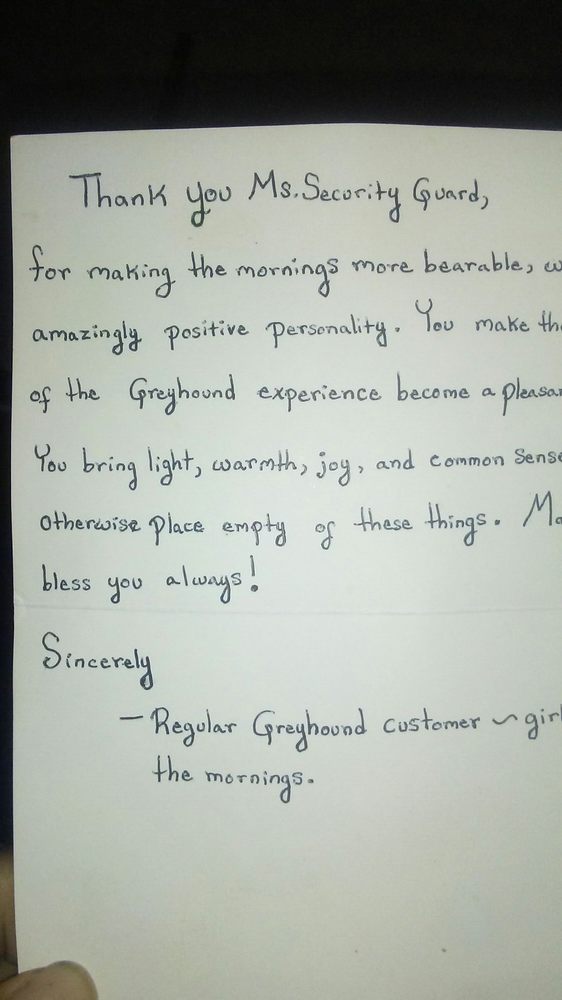 Thank you Ms. Security Guard,
for making the mornings more bearable,
amazingly positive personality. You make
of the Greyhound experience become a
You bring light, warmth, joy, and common sense
otherwise place empty of these things.
bless you always!
Sincerely
- Regular Greyhound customer ~ girl
the mornings.